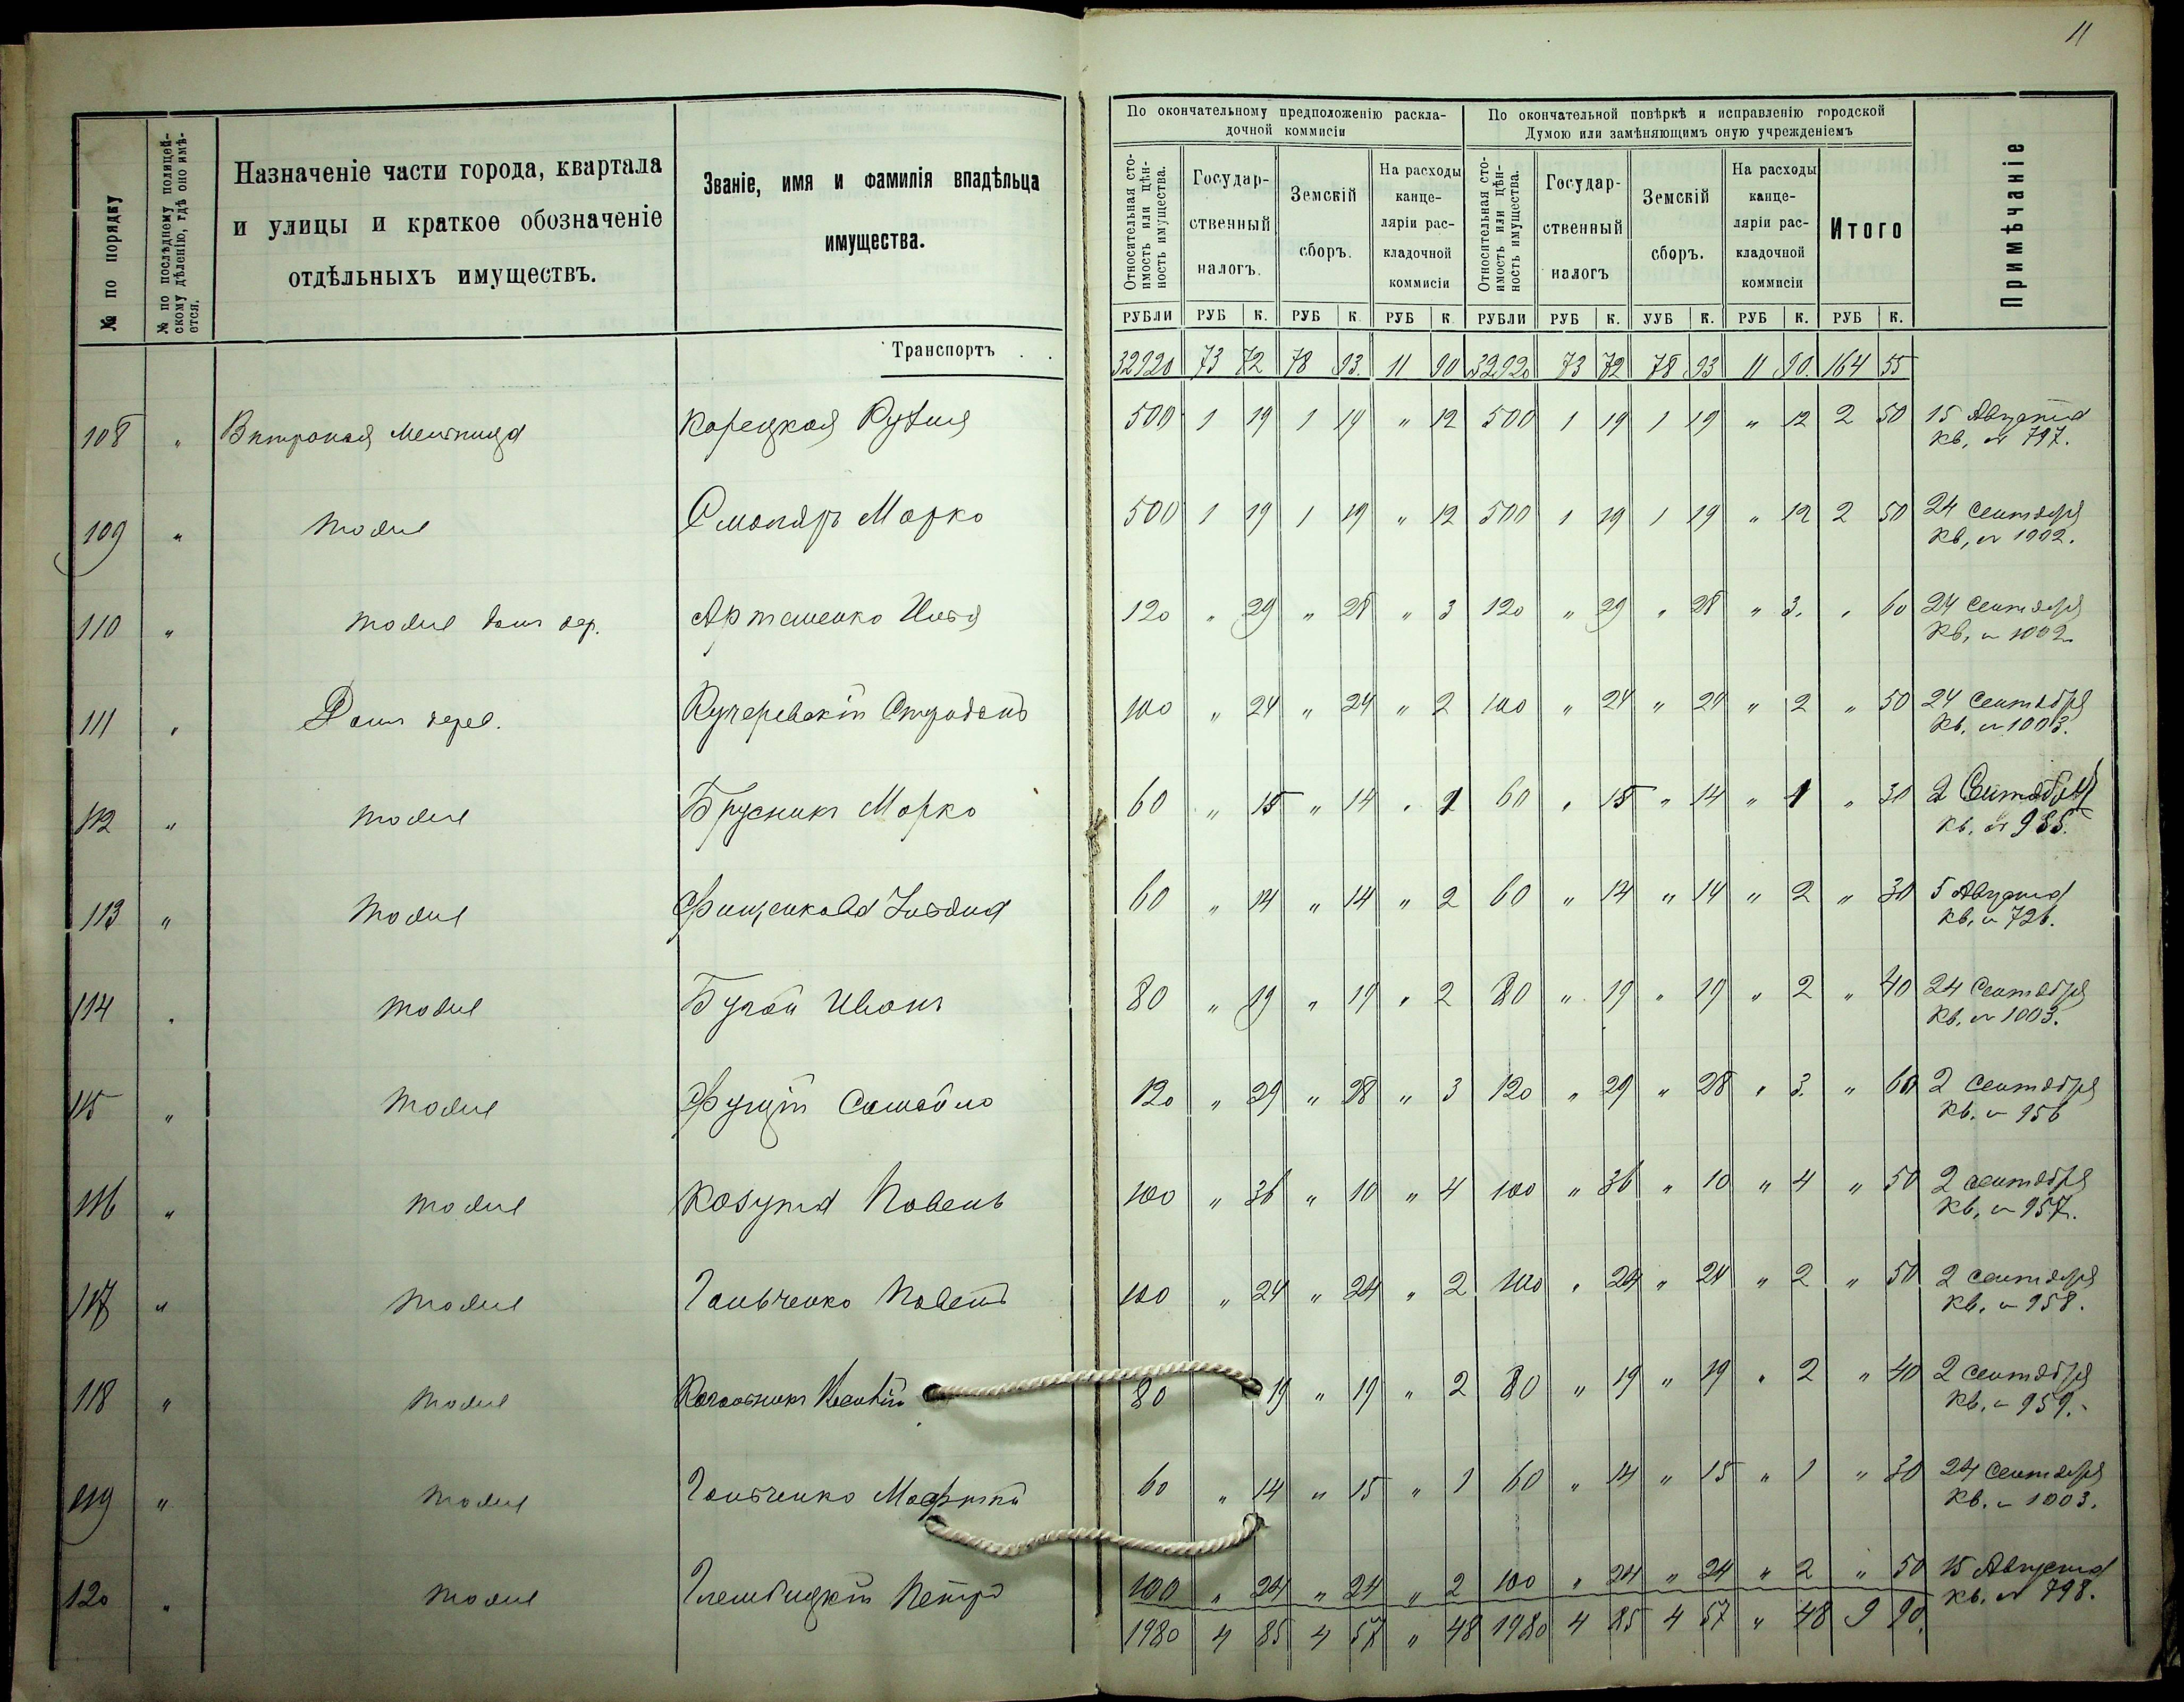 11
№ по порядку
№ по послѣднему полицей-
скому дѣленію, гдѣ оно имѣ-
ется.
Назначеніе части города, квартала
и улицы и краткое обозначеніе
отдѣльныхъ имуществъ.
Званіе, имя и фамилія владѣльца
имущества.
По окончательному предположенію раскла-
дочной коммисіи
По окончательной повѣркѣ и исправленію городской
Думою или замѣняющимъ оную учрежденіемъ
Относительная сто-
имость или цѣн-
ность имущества.
Государ-
ственный
налогъ.
Земскій
сборъ.
На расходы
канце-
ляріи рас-
кладочной
коммисіи
Относительная сто-
имость или цѣн-
ность имущества.
Государ-
ственный
налогъ
Земскій
сборъ.
На расходы
канце-
ляріи рас-
кладочной
коммисіи
Итого
Примѣчаніе
РУБЛИ РУБ К. РУБ К РУБ К РУБЛИ РУБ К. УУБ К. РУБ К. РУБ К.
Транспортъ . .
32920 73 72 78 93. 11 90 32920 73 72 78 93 11 90. 164 55
108 " Вѣтроная Мельница Корецкая 500 1 19 1 19 " 12 500 1 19 1 19 " 12 2 50 15 Августа
кв. № 797.
109 " тоже Смоляръ Марко 500 1 19 1 19 " 12 500 1 19 1 19 " 12 2 50 24 Сентября
кв. № 1002.
110 " тоже домъ дер. Илья 120 " 29 " 28 " 3 120 " 29 " 28 " 3. " 60 24 Сентября
кв. № 1002.
111 " Домъ дерев. Кучеревскій 100 " 24 " 24 " 2 100 " 24 " 24 " 2 " 50 24 Сентября
кв. № 1003.
112 " тоже Брусникъ Марко 60 " 15 " 14 " 1 60 " 15 " 14 " 1 " 30 2 Сентября
кв. № 955.
113 " тоже 60 " 14 " 14 " 2 60 " 14 " 14 " 2 " 30 5 Августа
кв. № 726.
114 " тоже Бугай Иванъ 80 " 19 " 19 " 2 80 " 19 " 19 " 2 " 40 24 Сентября
кв. № 1003.
115 " тоже Самойло 120 " 29 " 28 " 3 120 " 29 " 28 " 3. " 60 2 Сентября
кв. № 956
116 " тоже Козупа Павелъ 100 " 36 " 10 " 4 100 " 36 " 10 " 4 " 50 2 сентября
кв. № 957.
117 " тоже Гальченко Павелъ 100 " 24 " 24 " 2 100 " 24 " 24 " 2 " 50 2 сентября
кв. № 958.
118 " тоже 80 19 " 19 " 2 80 " 19 " 19 " 2 " 40 2 сентября
кв. № 959.
119 " тоже Гальченко 60 " 14 " 15 " 1 60 " 14 " 15 " 1 " 30 24 Сентября
кв. № 1003.
120 " тоже Петръ 100 " 24 " 24 " 2 100 " 24 " 24 " 2 " 50 15 Августа
кв. № 798.
1980 4 85 4 57 " 48 1980 4 85 4 57 " 48 9 90.